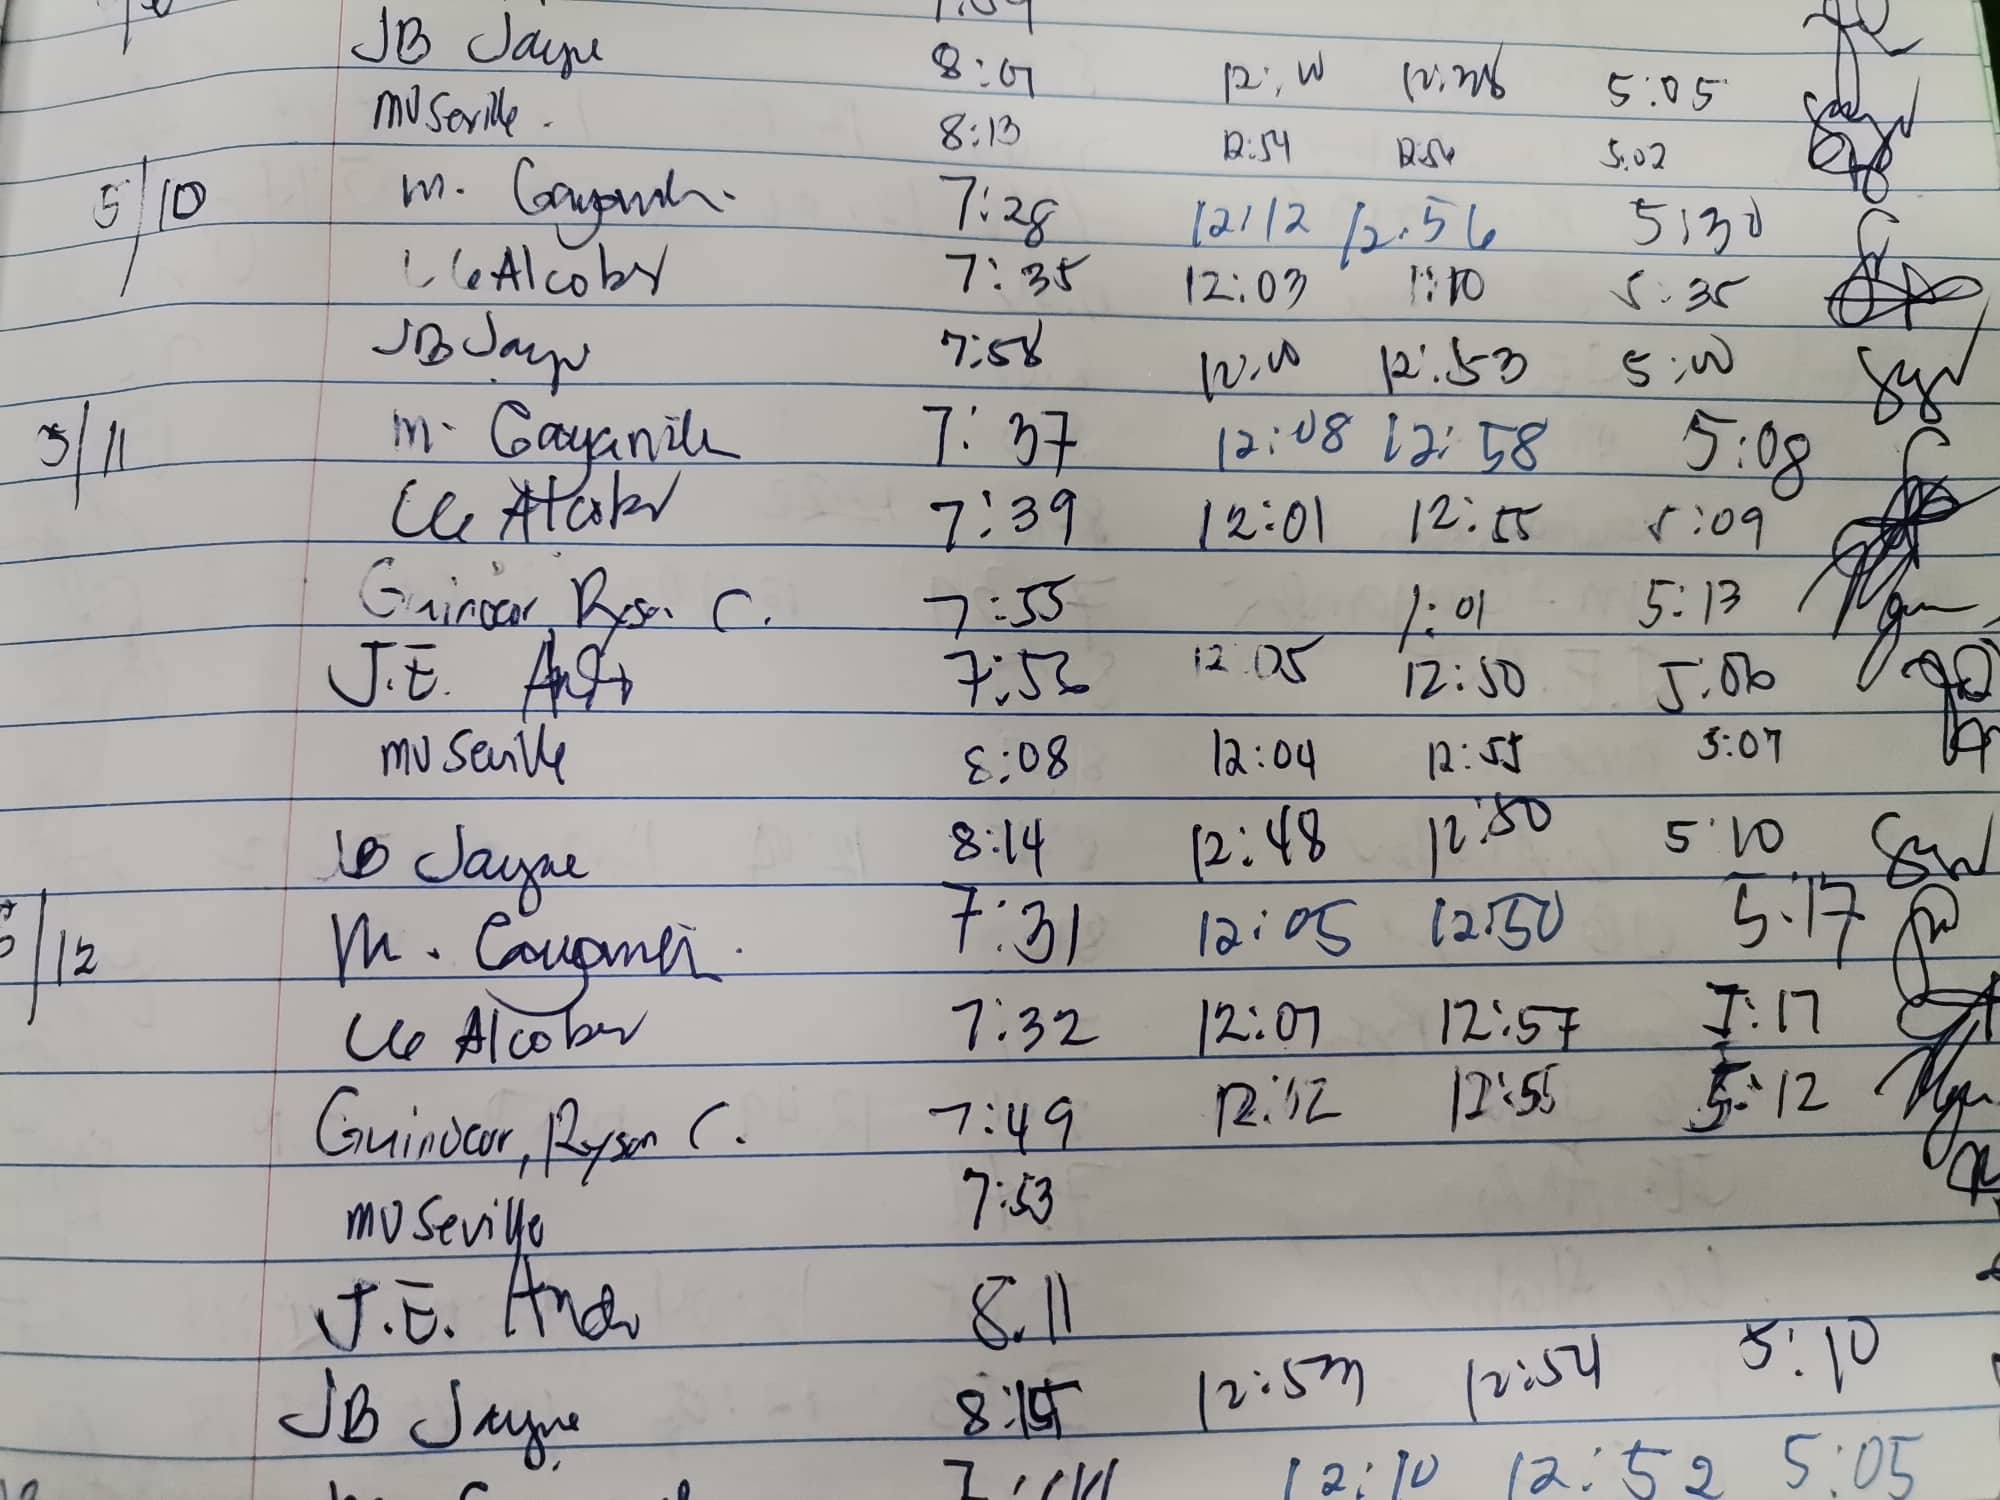 JB Jayne 8:07 12:00 5:05
MV Seville. 8:13 12:54 12:54 5:02
5/10 M. 7:28 12:12 12:56 5:30
Alcober 7:35 12:03 1:10 5:35
JB Jayne 7:58 12:00 12:53 5:00
5/11 M. Gayanilo 7:37 12:08 12:58 5:08
Alcober 7:39 12:01 12:55 5:09
Guinocor, Ryson C. 7:55 1:01 5:13
J.E. 7:53 12:05 12:50 5:06
MV Seville 8:08 12:04 12:55 5:07
JB Jayne 8:14 12:48 12:50 5:10
/12 M. 7:31 12:05 12:50 5:17
Alcober 7:32 12:07 12:57 5:17
Guinocor, Ryson C. 7:49 12:12 12:55 5:12
MV Seville 7:53
J.E. 8:11
JB Jayne 8:15 12:53 12:54 5:10
12:10 12:52 5:05